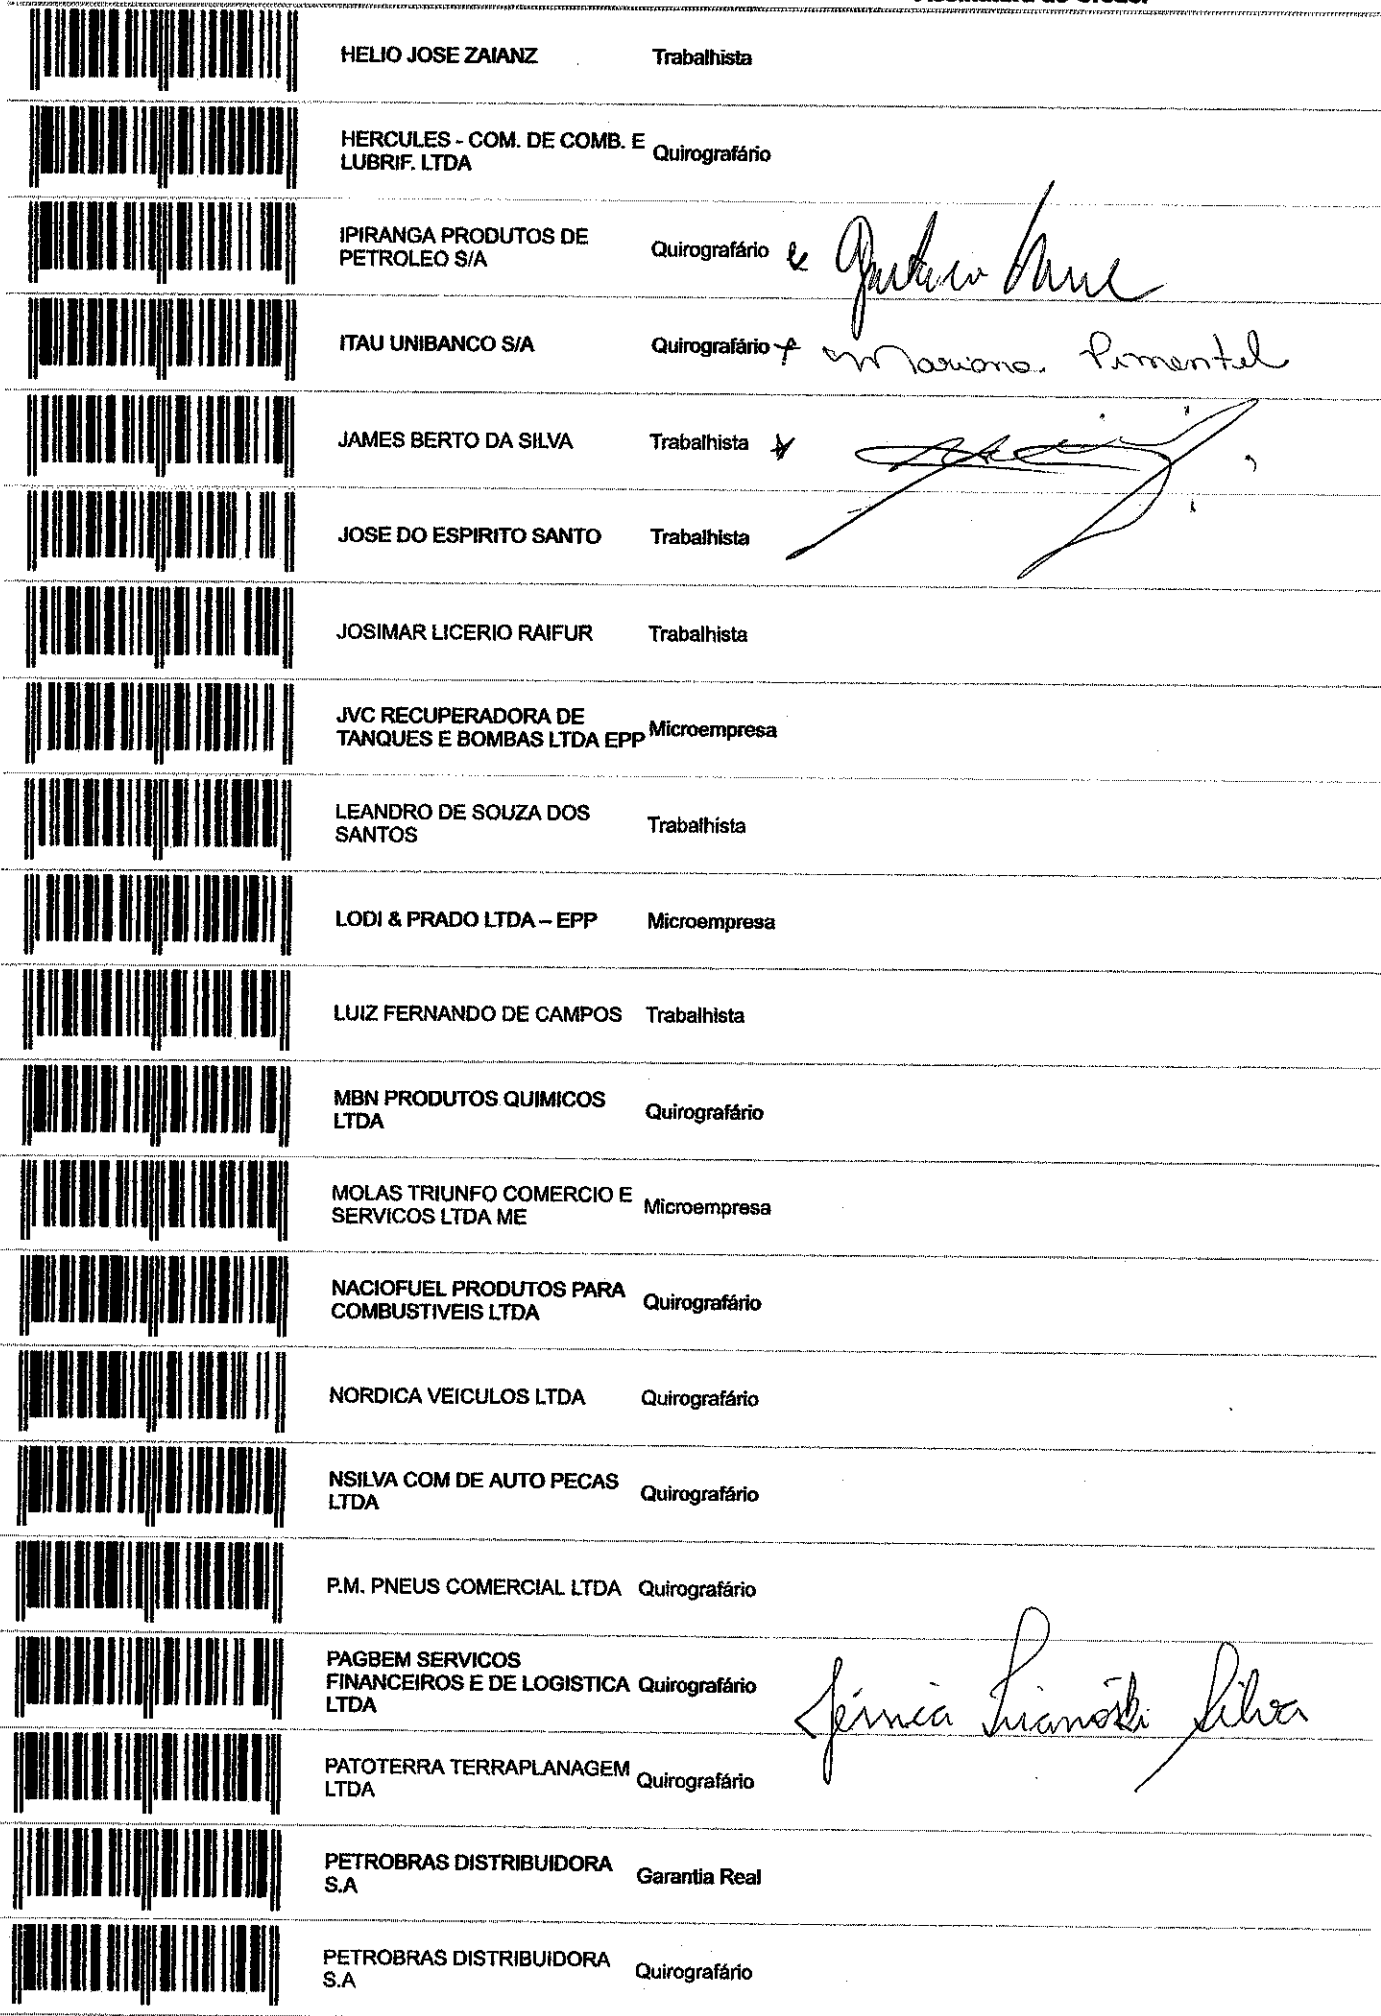 Assinatura do Credor
HELIO JOSE ZAIANZ Trabalhista
HERCULES - COM. DE COMB. E
LUBRIF. LTDA Quirografário
IPIRANGA PRODUTOS DE
PETROLEO S/A Quirografário
ITAU UNIBANCO S/A Quirografário Mariana Pimentel
JAMES BERTO DA SILVA Trabalhista
JOSE DO ESPIRITO SANTO Trabalhista
JOSIMAR LICERIO RAIFUR Trabalhista
JVC RECUPERADORA DE
TANQUES E BOMBAS LTDA EPP Microempresa
LEANDRO DE SOUZA DOS
SANTOS Trabalhista
LODI & PRADO LTDA – EPP Microempresa
LUIZ FERNANDO DE CAMPOS Trabalhista
MBN PRODUTOS QUIMICOS
LTDA Quirografário
MOLAS TRIUNFO COMERCIO E
SERVICOS LTDA ME Microempresa
NACIOFUEL PRODUTOS PARA
COMBUSTIVEIS LTDA Quirografário
NORDICA VEICULOS LTDA Quirografário
NSILVA COM DE AUTO PECAS
LTDA Quirografário
P.M. PNEUS COMERCIAL LTDA Quirografário
PAGBEM SERVICOS
FINANCEIROS E DE LOGISTICA Quirografário Silva
LTDA
PATOTERRA TERRAPLANAGEM
LTDA Quirografário
PETROBRAS DISTRIBUIDORA
S.A Garantia Real
PETROBRAS DISTRIBUIDORA
S.A Quirografário